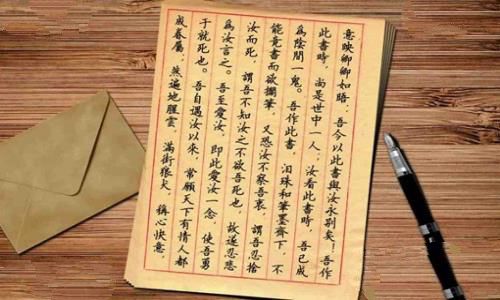 意映卿卿如晤:吾今以此書與汝永別矣!吾作
此書時,尚是世中一人;汝看此書時,吾已成
為陰間一鬼。吾作此書,泪珠和筆墨齊下,不
能竟書而欲擱筆,又恐汝不察吾衷,謂吾忍捨
汝而死,謂吾不知汝之不欲吾死也,故遂忍悲
為汝言之。吾至愛汝,即此愛汝一念,使吾勇
于就死也。吾自遇汝以來,常願天下有情人都
成眷屬;然遍地腥雲,滿街狼犬,稱心快意,